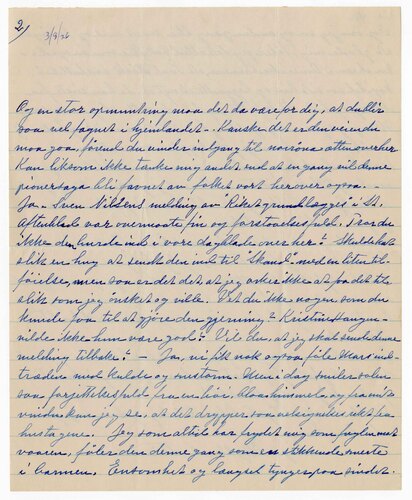 2)
3/9/26
Og en stor opmuntring maa det da være for dig, at du blir
saa vel fagnet i hjemlandet. Kanske det er den veien du
maa gaa, førend du vinder indgang til norrøna ætten over her
Kan liksom ikke tænke mig andet end at en gang vil denne
pioner saga bli favnet av folket vort herover ogsaa. –
Ja, Sven Nilssens melding av "Riket grundlægges" i St.
Aftenblad var overmaate fin og forstaaelsesfuld. Tror du
ikke den burde ind i vore dagblade over her? Skulde hat
slik en hug at sendt den ind til "Skand" med en liten til-
føielse, men saa er det det at jeg orker ikke at faa det til
slik som jeg ønsket og vilde. Vet du ikke nogen som du
kunde faa til at gjøre den gjerning? Kristine Haugen
vilde ikke hun være god? Vil du, at jeg skal sende denne
melding tilbake? – Ja, vi fik nok ogsaa føle Mars ind-
træden med kulde og snestorm. Men i dag smiler solen
saa forjettelsesfuld fra en høi, blaa himmel, og fra mit
vindu kan jeg se, at det drypper saa velsignelsesrikt fra
hustagene. Jeg som altid har frydet mig som fuglen met
vaaren, føler den denne gang som en stikkende smerte
i barmen. Ensomhet og længsel tynger paa sindet.